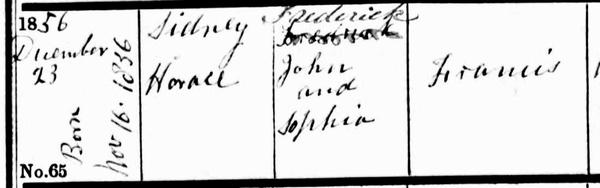 1856
December
23
Born
Nov 16. 1856
No. 65
Sidney
Horace
Frederick
John
and
Sophia
Francis